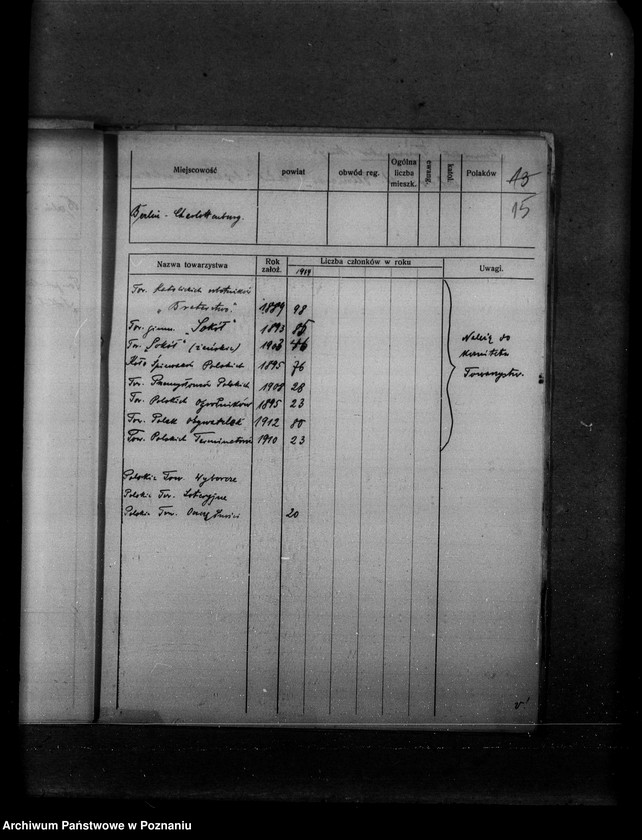 Miejscowość powiat obwód reg. Ogólna liczba mieszk. ewang. katol. Polaków 13
Berlin - Charlottenburg. 15
Nazwa towarzystwa Rok założ. Liczba członków w roku Uwagi.
1919
Tow. Katolickich robotników
„Braterstwo" 1889 98
Tow. gimn. „Sokół" 1893 85
Tow. „Sokół" (żeńskie) 1903 46
Koło Śpiewackie Polskich 1895 76
Tow. Przemysłowców Polskich 1908 28
Tow. Polskich Ogrodników 1895 23
Tow. Polek Obywatelek 1912 80
Tow. Polskich Terminatorów 1910 23
Należą do
Komitetu
Towarzystw.
Polskie Tow. Wyborcze
Polskie Tow. Loteryjne
Polskie Tow. 20
v
Archiwum Państwowe w Poznaniu